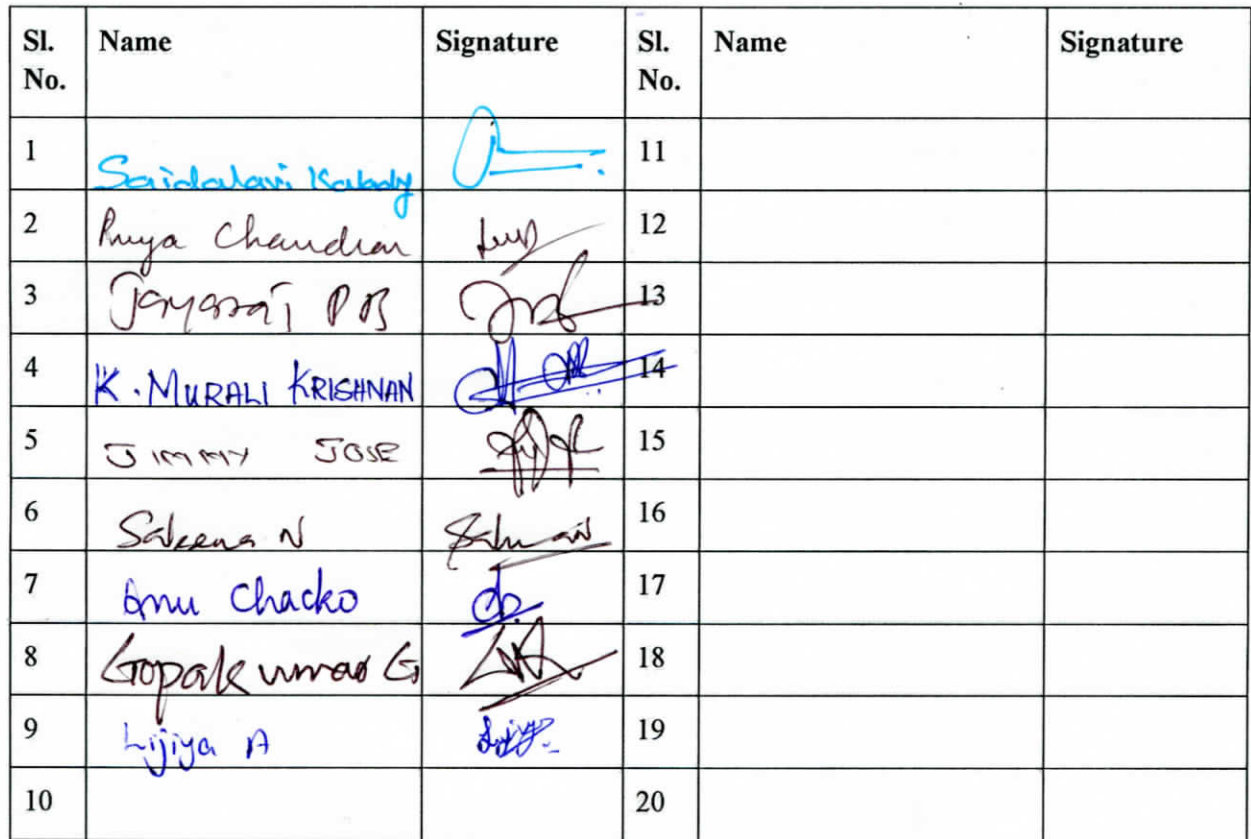 Sl. No. Name Signature Sl. No. Name Signature
1 Saidalavi Kalady 11
2 Priya Chandran 12
3 Jayaraj P B 13
4 K. MURALI KRISHNAN 14
5 JIMMY JOSE 15
6 Saleena N 16
7 Anu Chacko 17
8 Gopakumar G 18
9 Lijiya A 19
10 20